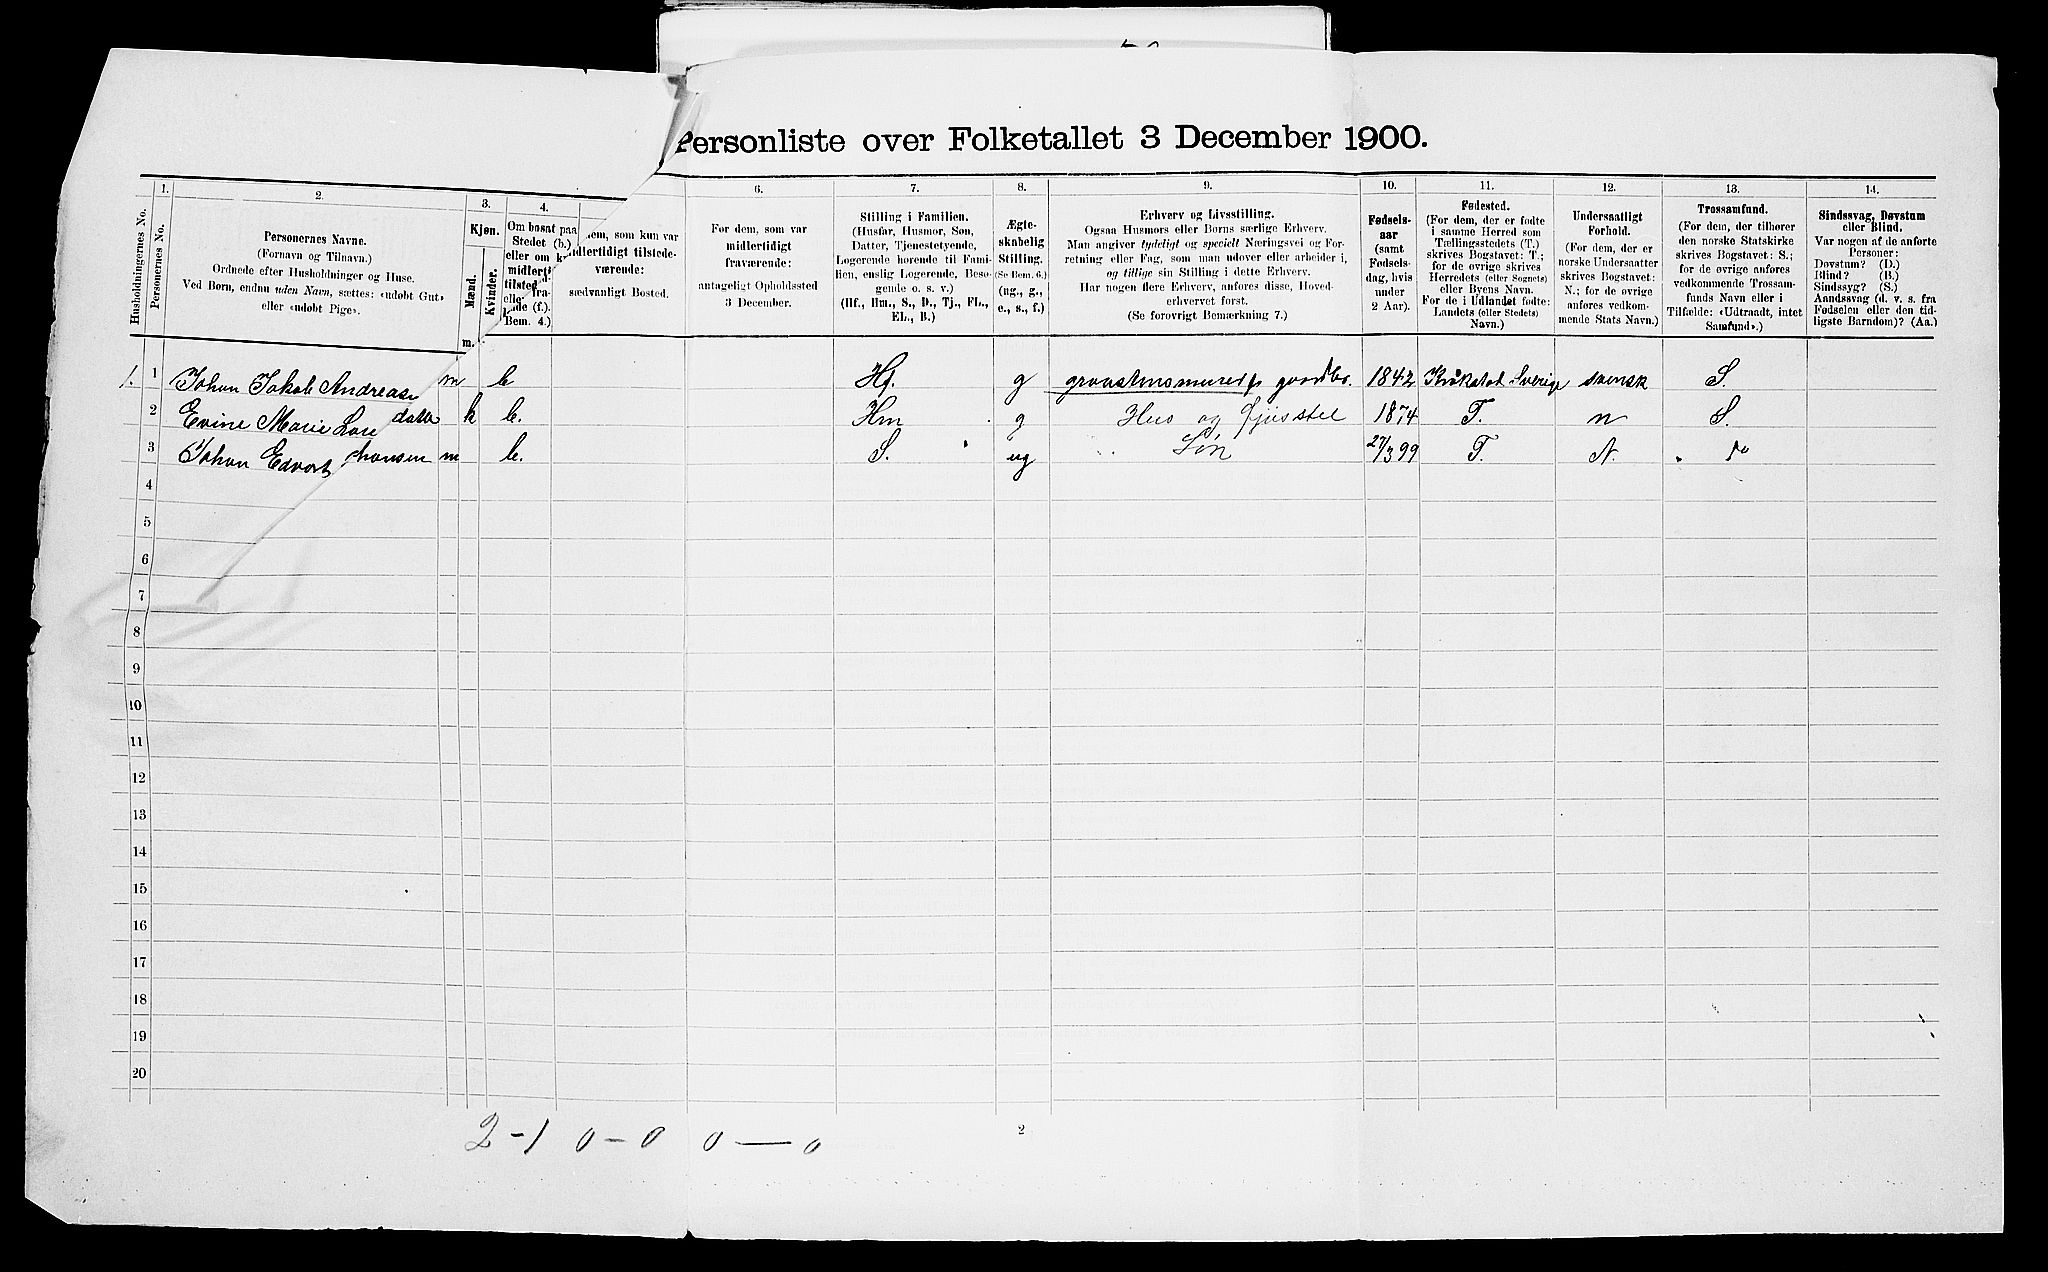 Personliste over Folketallet 3 December 1900.
1. 2. 3. 4. 6. 7. 8. 9. 10. 11. 12. 13. 14.
Husholdningernes No.
Personernes No.
Personernes Navne.
(Fornavn og Tilnavn.)
Ordnede efter Husholdninger og Huse.
Ved Børn, endnu uden Navn, sættes: «udøbt Gut»
eller «udøbt Pige».
Kjøn.
Mænd.
Kvinder.
m.
Om bosat paa
Stedet (b.)
eller om k
midlerti
tilsted
elle fra-
de (f.).
Bem. 4.)
dem, som kun var
midlertidigt tilstede-
værende:
sædvanligt Bosted.
For dem, som var
midlertidigt
fraværende:
antageligt Opholdssted
3 December.
Stilling i Familien.
(Husfar, Husmor, Søn,
Datter, Tjenestetyende,
Logerende hørende til Fami-
lien, enslig Logerende, Besø-
gende o. s. v.)
(Hf., Hm., S., D., Tj., FL.,
EL., B.)
Ægte-
skabelig
Stilling.
(Se Bem. 6.)
(ug., g.,
e., s., f.)
Erhverv og Livsstilling.
Ogsaa Husmors eller Børns særlige Erhverv.
Man angiver tydeligt og specielt Næringsvei og For-
retning eller Fag, som man udøver eller arbeider i,
og tillige sin Stilling i dette Erhverv.
Har nogen flere Erhverv, anføres disse, Hoved-
erhvervet først.
(Se forøvrigt Bemærkning 7.)
Fødsels-
aar
(samt
Fødsels-
dag, hvis
under
2 Aar).
Fødested.
(For dem, der er fødte
i samme Herred som
Tællingsstedets (T.)
skrives Bogstavet: T.;
for de øvrige skrives
Herredets (eller Sognets)
eller Byens Navn.
For de i Udlandet fødte:
Landets (eller Stedets)
Navn.)
Undersaatligt
Forhold.
(For dem, der er
norske Undersaatter
skrives Bogstavet:
N.; for de øvrige
anføres vedkom-
mende Stats Navn.)
Trossamfund.
(For dem, der tilhører
den norske Statskirke
skrives Bogstavet: S.;
for de øvrige anføres
vedkommende Trossam-
funds Navn eller i
Tilfælde: «Udtraadt, intet
Samfund».)
Sindssvag, Døvstum
eller Blind.
Var nogen af de anførte
Personer:
Døvstum? (D.)
Blind? (B.)
Sindssyg? (S.)
Aandssvag (d. v. s. fra
Fødselen eller den tid-
ligste Barndom)? (Aa.)
1. 1 Johan Jakob Andreas m b Hf. g graastensmurer gaardbr. 1842 Krokstad Sverige svensk S.
2 Evine Marie Lar datte k b. Hm g Hus og fjøsstel 1874 T. n S.
3 Johan Edvart hansen m b. S. ug Søn 27/3 99 T. N.
4
5
6
7
8
9
10
11
12
13
14
15
16
17
18
19
20
2 - 1 0 - 0 0 — 0
2